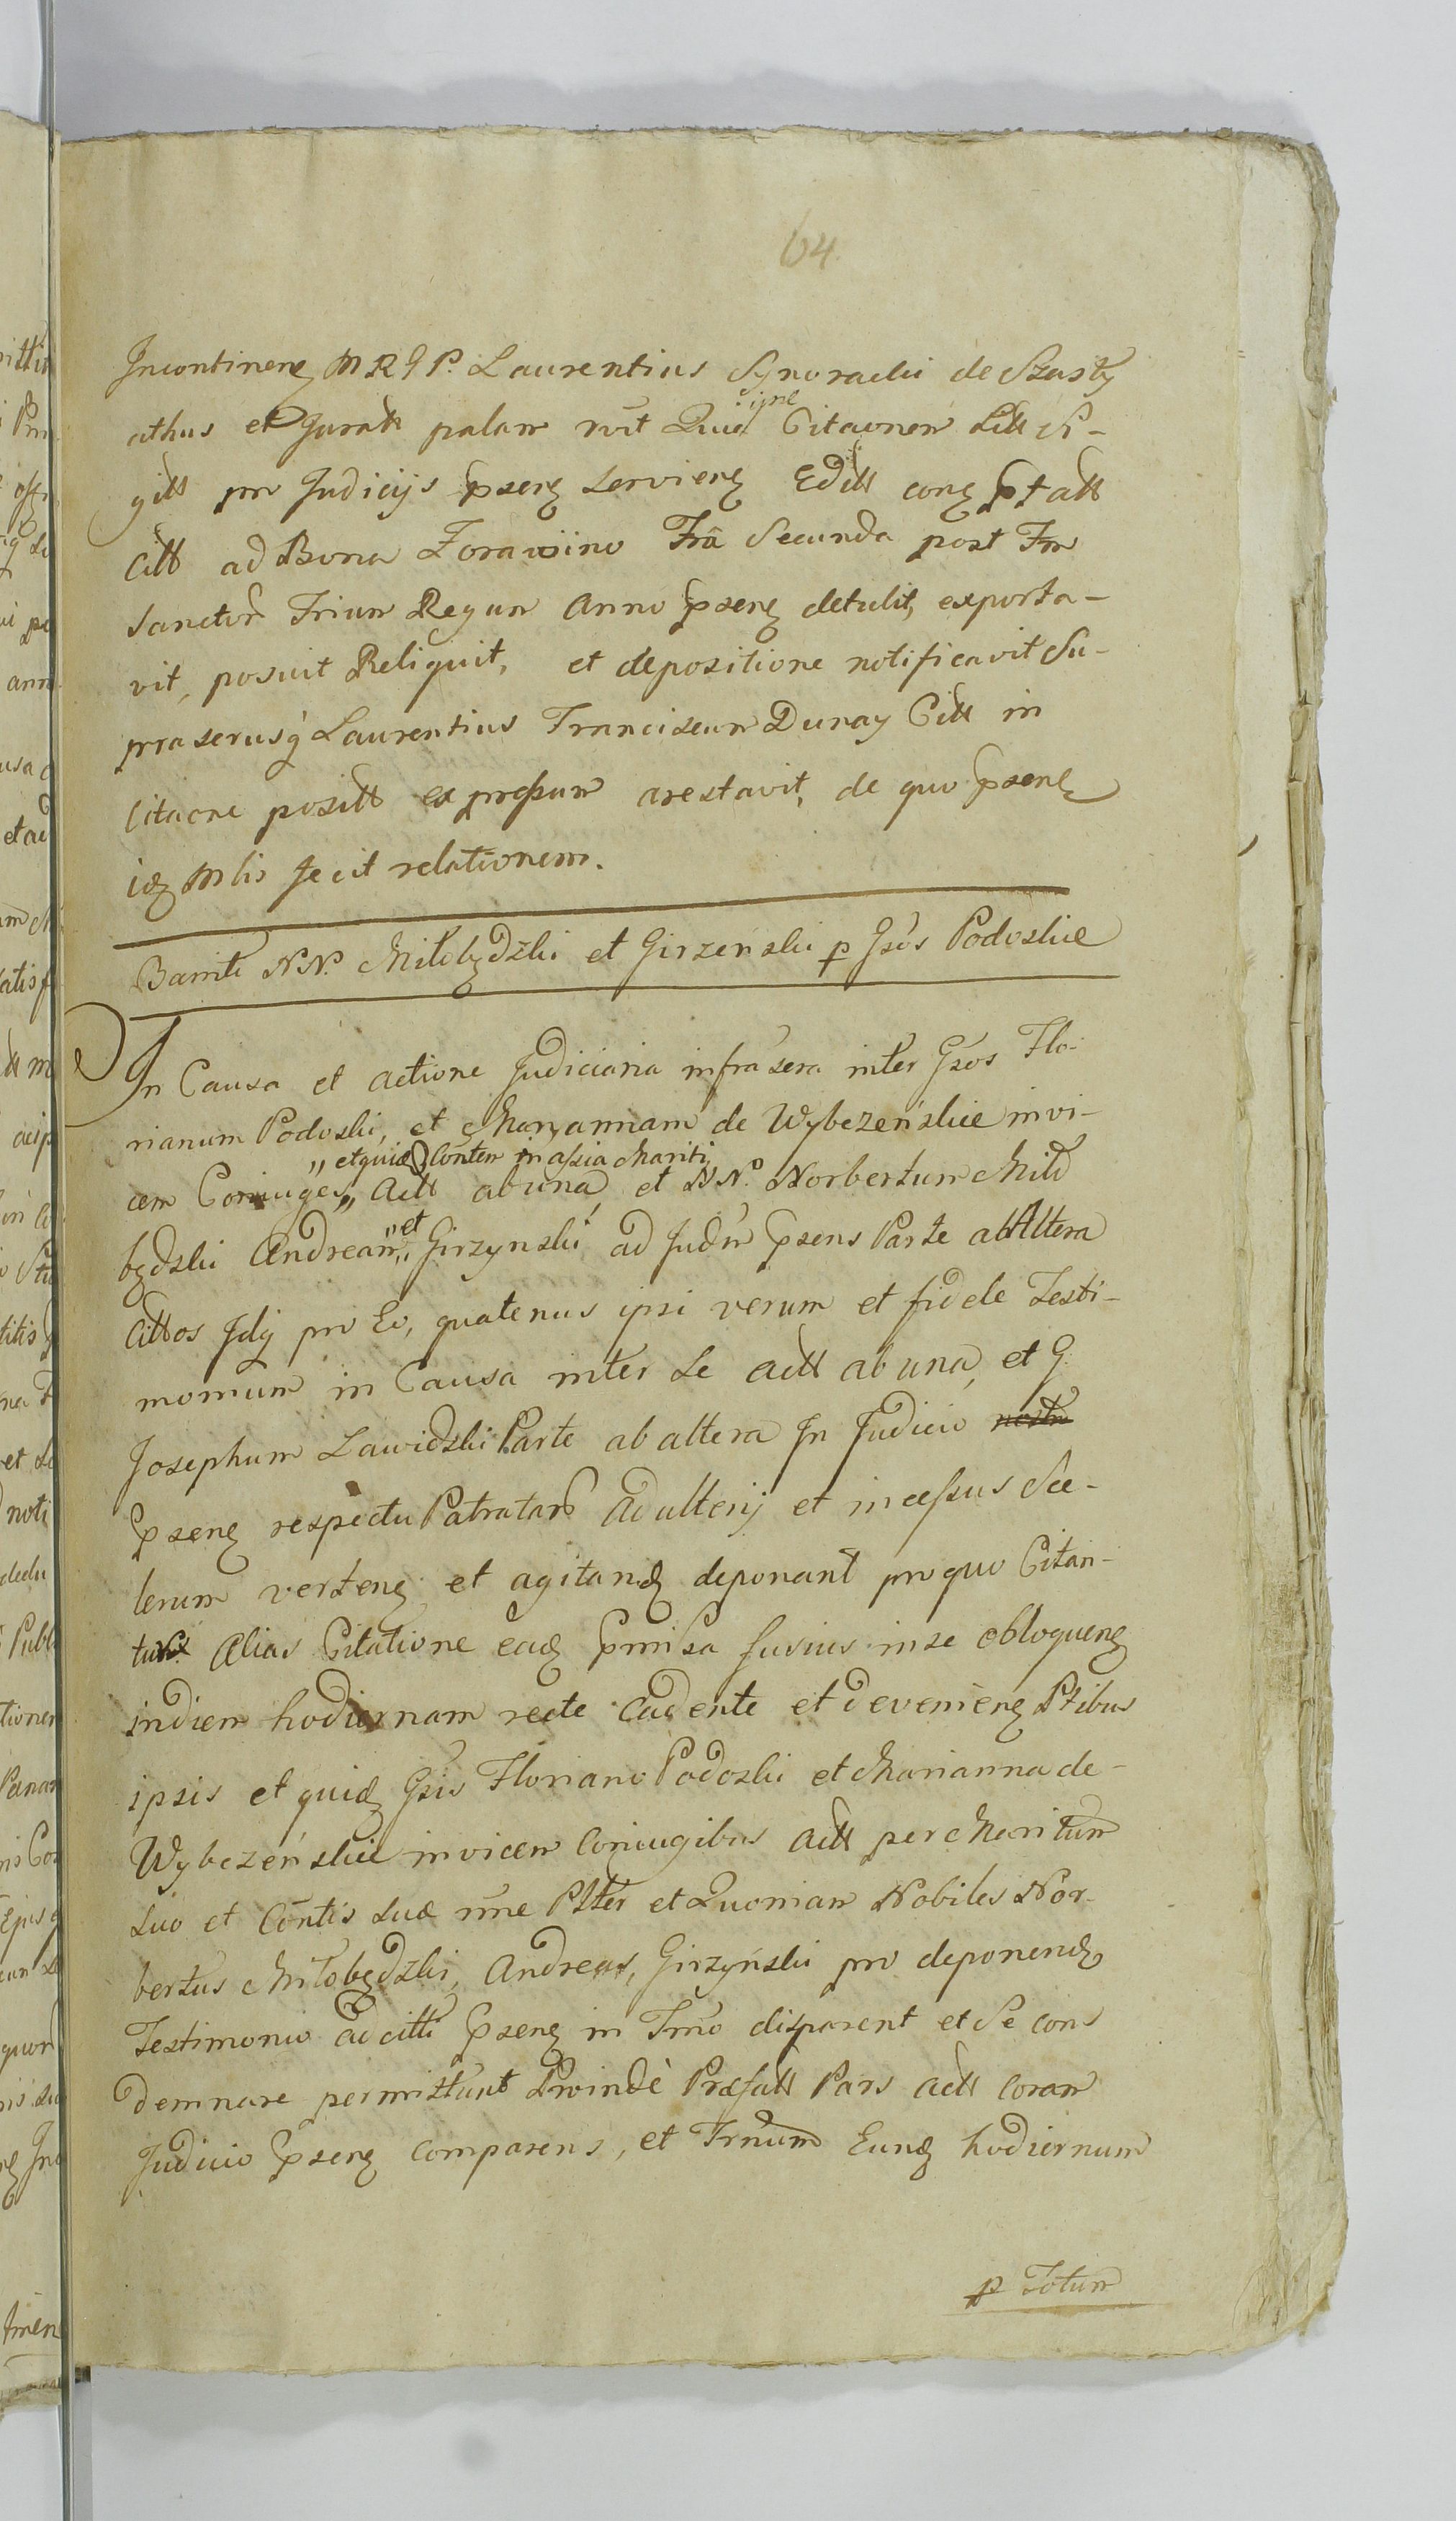 64
Incontineng M R G P. Laurentius Synoracki de Szasty
athus et Juratt palam rut Quia ipse Citaonem Litt Si-
gitt pro Judicijs pseng servieng Editt cong ptatt
Citt ad Bona Zorawino Fra Secunda post Fm
Sanctor Trium Regum Anno pseng detulit, exporta-
vit, posuit Reliquit, et depositione notificavit Su-
praserusq Laurentius Franciscum Dunay Citt in
Citaone positt expressum arestavit, de quo pseng
idq Mlis fecit relationem.
Bannitt NN. Miłobędzki et Girzeński p Gsos Podoskie
In Causa et actione Judiciaria infrasera inter Gsos Flo-
rianum Podoski, et Maryannam de Wybczeńskie invi-
cem Coniuges „ et quidq Contem in assia Mariti „ Actt ab una, et NN. Norbertum Miło
będzki Andream „ et „ Girzynski ad Judm psens Parte ab Altera
Cittos Idq pro Eo, quatenus ipsi verum et fidele Testi-
monium in Causa inter Se actt ab una, et G
Josephum Lawidzki Parte ab altera In Judicio nostro
pseng respectu Patrator Adulterij et incessus Sce-
lerum verteng et agitandq deponant pro quo Citan-
tur. Alias Citatione eadq pmissa fusius in se obloqueng
in diem hodiernam recte Cadente et devenieng Ptibus
ipsis et quidq Gsis Floriano Podoski et Marianna de-
Wybczeńskie invicem Coniugibus actt per Maritum
Suo et Contis Suæ nne Plter et Quoniam Nobiles Nor-
bertus Miłobędzki, Andreas, Girzyński pro deponendq
Testimonio ad citti pseng in Tmo disparent et Se con
demnare permittunt Proindè Præfatt Pars actt Coram
Judicio pseng comparens, et Trnum Eundq hodiernum
p Totum